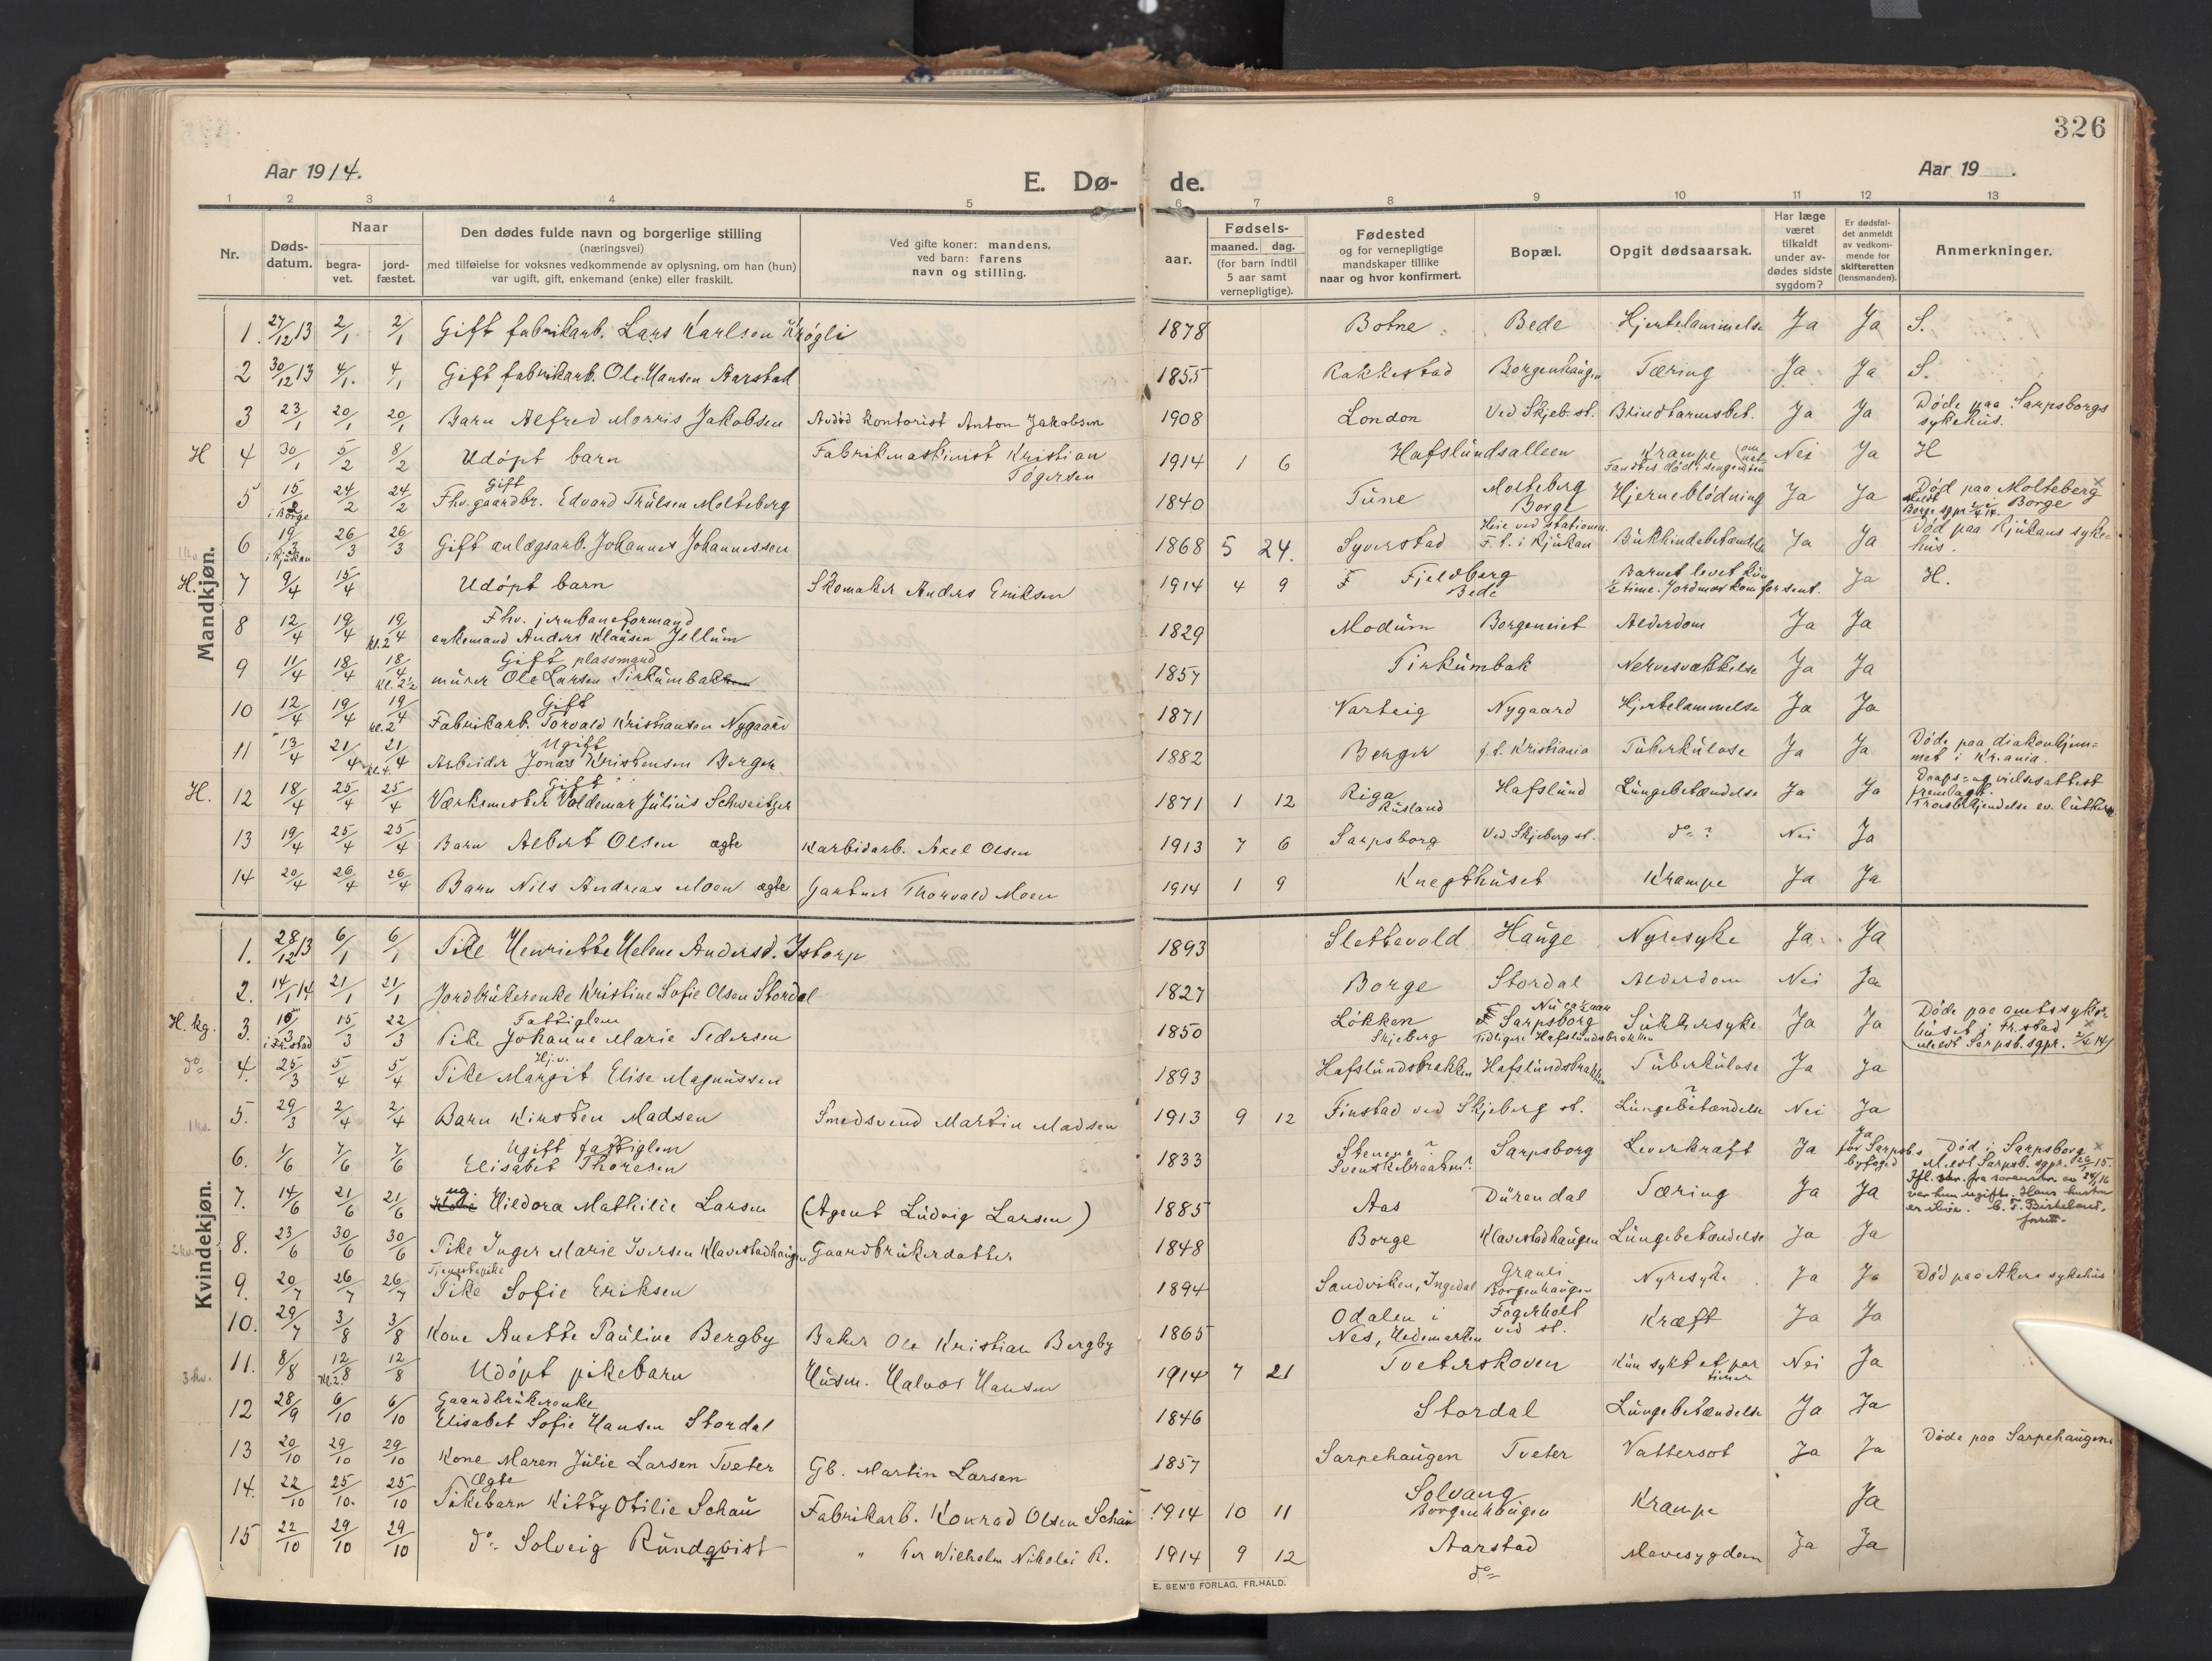 326
Aar 1914.
E. Dø-
de.
Aar 19 .
1 2 3 4 5 6 7 8 9 10 11 12 13
Nr.
Døds-
datum.
Naar
begra-
vet.
jord-
fæstet.
Den dødes fulde navn og borgerlige stilling
(næringsvei)
med tilføielse for voksnes vedkommende av oplysning, om han (hun)
var ugift, gift, enkemand (enke) eller fraskilt.
Ved gifte koner: mandens,
ved barn: farens
navn og stilling.
Fødsels-
aar.
maaned. dag.
(for barn indtil
5 aar samt
vernepligtige).
Fødested
og for vernepligtige
mandskaper tillike
naar og hvor konfirmert.
Bopæl.
Opgit dødsaarsak.
Har læge
været
tilkaldt
under av-
dødes sidste
sygdom?
Er dødsfal-
det anmeldt
av vedkom-
mende for
skifteretten
(lensmanden).
Anmerkninger.
Mandkjøn.
1. 27/12 13 2/1 2/1 Gift fabrikarb. Lars Karlsen Krøgli 1878 Botne Bede Hjertelammelse Ja Ja S.
2 30/12 13 4/1. 4/1 Gift fabrikarb. Ole Hansen Aarstad 1855 Rakkestad Borgenhaugen Tæring Ja Ja S.
3 23/1 20/1 20/1 Barn Alfred Morris Jakobsen Avdød Kontorist Anton Jakobsen 1908 London Ved Skjeb. st. Blindtarmsbet. Ja Ja Døde paa Sarpsborgs
sykehus.
H 4 30/1 5/2 8/2 Udøpt barn Fabrikmaskinist Kristian
Tøgersen 1914 1 6 Hafslundsalleen Krampe (om nat-
Fandtes død i sengen Nei Ja H
5 15/2 i Borge 24/2 24/2 Gift
Fhv. gaardbr. Edvard Trulsen Molteberg 1840 Tune Molteberg
Borge Hjerneblødning Ja Ja Død paa Molteberg
i Borge
6 19/3 i Rjukan 26/3 26/3 Gift anlægsarb. Johannes Johannessen 1868 5 24. Syverstad Heie ved stationen.
F. t. i Rjukan Bukhindebetændelse Ja Ja Død paa Rjukans syke-
hus.
H. 7 9/4 15/4 Udøpt barn Skomaker Anders Eriksen 1914 4 9 Fjeldberg
Bede Barnet levet kun
½ time. Jordmor kom for sent. Ja H.
8 12/4 19/4 19/4 kl. 2 Fhv. jernbaneformand
enkemand Anders Klausen Jellum 1829 Modum Borgeneiet Alderdom Ja Ja
9 11/4 18/4 18/4 kl. 2½ Gift plassmand
murer Ole Larsen Tirkumbakken 1857 Tirkumbak Nervesvækkelse Ja Ja
10 12/4 19/4 19/4 kl. 2 Gift
Fabrikarb. Torvald Kristiansen Nygaard 1871 Varteig Nygaard Hjertelammelse Ja Ja
11 13/4 21/4 21/4 kl. 4. Ugift
Arbeider Jonas Kristensen Berger 1882 Berger f. t. Kristiania Tuberkulose Ja Ja Døde paa diakonhjem-
met i Kr.ania.
H. 12 18/4 25/4 25/4 Gift
Værksmester Valdemar Julius Schweitzer 1871 1 12 Riga
Rusland Hafslund Lungebetændelse Ja Ja Daaps- og vielsesattest
fremlagt.
Trosbekjendelse ev. luthersk
13 19/4 25/4 25/4 Barn Albert Olsen ægte Karbidarb. Axel Olsen 1913 7 6 Sarpsborg Ved Skjeberg st. do ? Nei Ja
14 20/4 26/4 26/4 Barn Nils Andreas Moen ægte Gartner Thorvald Moen 1914 1 9 Knegthuset Krampe Ja Ja
Kvindekjøn.
1. 28/12 13 6/1 6/1 Pike Henriette Helene Andersd. Istorp 1893 Slettevold Hauge Nyresyke Ja Ja
2. 14/1 14 21/1 21/1 Jordbrukerenke Kristine Sofie Olsen Stordal 1827 Borge Stordal Alderdom Nei Ja
H. kg. 3. 10/3 i Fr.stad 15/3 22/3 Fattiglem
Pike Johanne Marie Pedersen 1850 Løkken
Skjeberg Sarpsborg
Tidligere Hafslundsbrakken Sukkersyke Ja Ja Døde paa amtssyke-
huset i Fr.stad
Meldt Sarpsb. sgpr. 2/4 14)
do 4. 25/3 5/4 5/4 Hj.v.
Pike Margit Elise Magnussen 1893 Hafslundsbrakken Hafslundsbrakken Tuberkulose Ja Ja
5. 29/3 2/4 2/4 Barn Kirsten Madsen Smedsvend Martin Madsen 1913 9 12 Finstad ved Skjeberg st. Lungebetændelse ? Nei Ja
6. 1/6 7/6 7/6 Ugift fattiglem
Elisabet Thoresen 1833 Stenene ? Sarpsborg Leverkræft Ja Ja
for Sarpsb.s
byfoged Død i Sarpsborg
Meldt Sarpsb. sgpr.
7. 14/6 21/6 21/6 ug Hildora Mathilie Larsen (Agent Ludvig Larsen) 1885 Aas Durendal Tæring Ja Ja
8. 23/6 30/6 30/6 Pike Inger Marie Iversen Klavestadhaugen Gaardbrukerdatter 1848 Borge Klavestadhaugen Lungebetændelse Ja Ja
9. 20/7 26/7 26/7 Tjenestepike
Pike Sofie Eriksen 1894 Sandviken, Ingedal Granli
Borgenhaugen Nyresyke Ja Ja Død paa Akers sykehus
10. 29/7 3/8 3/8 Kone Anette Pauline Bergby Baker Ole Kristian Bergby 1865 Odalen i
Nes, Hedemarken Fagerholt
ved st. Kræft Ja Ja
11. 8/8 12/8 kl. 2. 12/8 Udøpt pikebarn Husm. Halvor Hansen 1914 7 21 Tveterskoven Kun sykt et par
timer Nei Ja
12 28/9 6/10 6/10 Gaardbrukerenke
Elisabet Sofie Hansen Stordal 1846 Stordal Lungebetændelse Ja Ja
13 20/10 29/10 29/10 Kone Maren Julie Larsen Tveter Gb. Martin Larsen 1857 Sarpehaugen Tveter Vattersot Ja Ja Døde paa Sarpehaugen.
14. 22/10 25/10. 25/10 Ægte
Pikebarn Kitty Otilie Schau Fabrikarb. Konrad Olsen Schau 1914 10 11 Solvang
Borgenhaugen Krampe Ja
15 22/10 29/10 29/10 do Solveig Rundqvist " Per Wilhelm Nikolai R. 1914 9 12 Aarstad
do Mavesygdom Ja Ja
E. SEM'S FORLAG, FR.HALD.